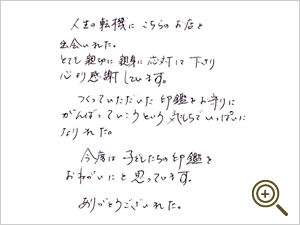 人生の転機にこちらのお店と
出会いました。
とても親切に親身に応対して下さり
心より感謝しています。
つくっていただいた印鑑をお守りに
がんばっていこうという気もちでいっぱいに
なりました。
今度は子どもたちの印鑑を
おねがいにと思っています。
ありがとうございました。